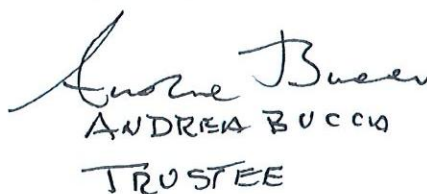 Andrea Bucca
ANDREA BUCCIA
TRUSTEE